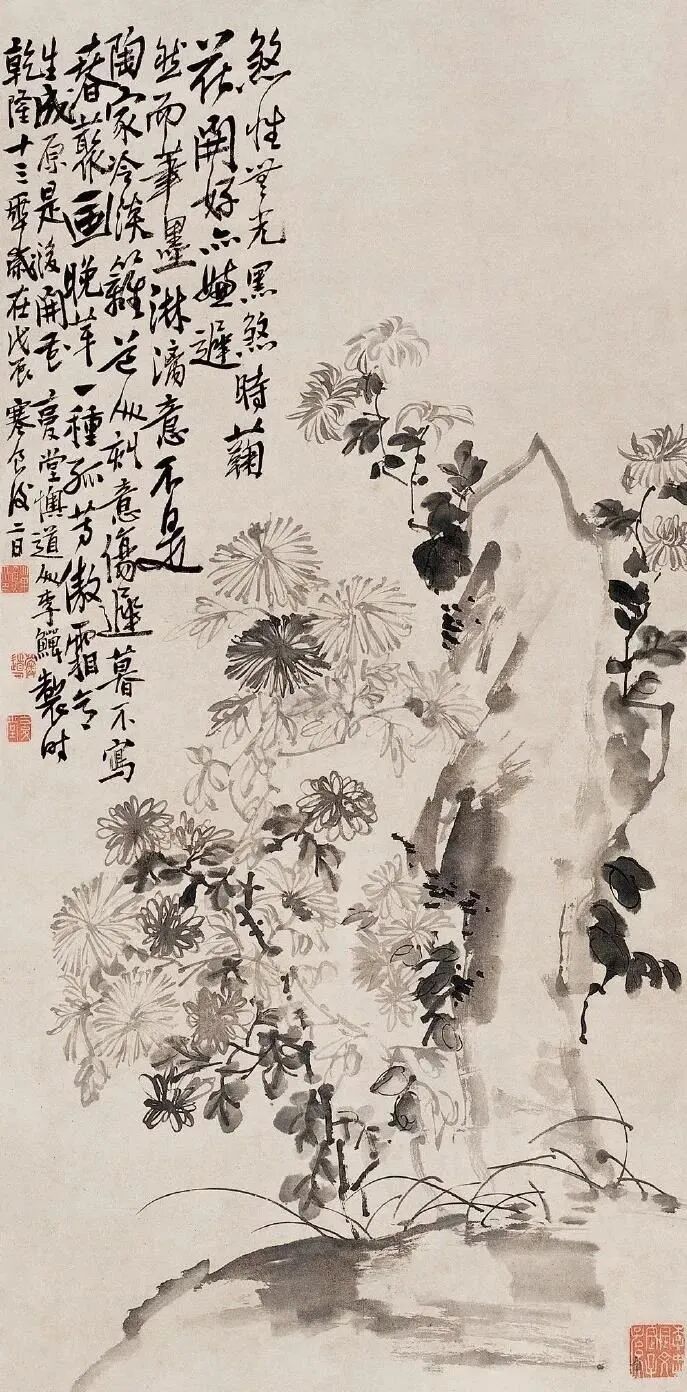 煞性無光黑煞時鞠
花開好亦嫌遲
然而筆墨淋漓意不是
陶家冷淡籬 刻意傷遲暮不寫
春叢画晚華一種孤芳傲霜
生成原是後開花 復堂懊道人李鱓製时
乾隆十三年歲在戊辰寒食後二日